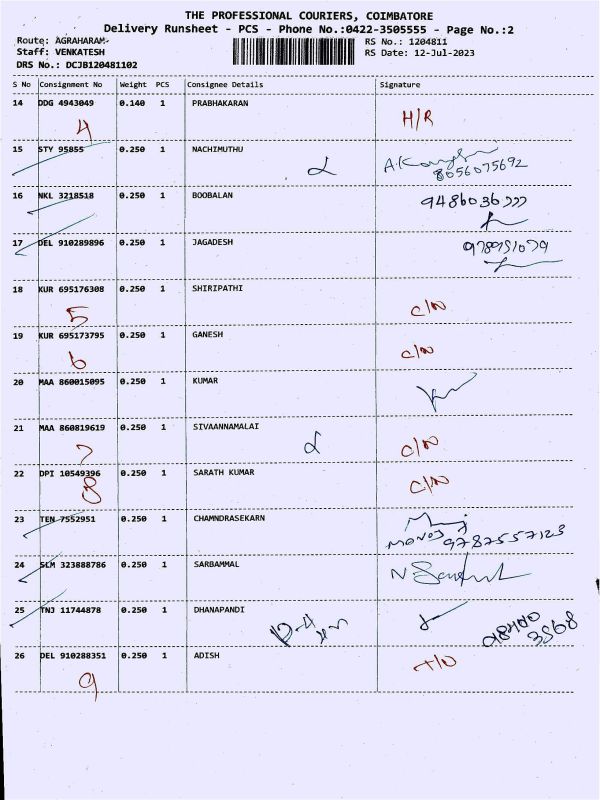 THE PROFESSIONAL COURIERS, COIMBATORE
Delivery Runsheet - PCS - Phone No.:0422-3505555 - Page No.:2
Route: AGRAHARAM- RS No.: 1204811
Staff: VENKATESH RS Date: 12-Jul-2023
DRS No.: DCJB120481102
S No Consignment No Weight PCS Consignee Details Signature
14 DDG 4943049 0.140 1 PRABHAKARAN
4 H/R
15 STY 95855 0.250 1 NACHIMUTHU
8056075692
16 NKL 3218518 0.250 1 BOOBALAN
17 DEL 910289896 0.250 1 JAGADESH
18 KUR 695176308 0.250 1 SHIRIPATHI
5 C/N
19 KUR 695173795 0.250 1 GANESH
6 C/N
20 MAA 860015095 0.250 1 KUMAR
21 MAA 860819619 0.250 1 SIVAANNAMALAI
7 C/N
22 DPI 10549396 0.250 1 SARATH KUMAR
8 C/N
23 TEN 7552951 0.250 1 CHAMNDRASEKARN
MANOJ 9787557123
24 SLM 323888786 0.250 1 SARBAMMAL
25 TNJ 11744878 0.250 1 DHANAPANDI
26 DEL 910288351 0.250 1 ADISH
9